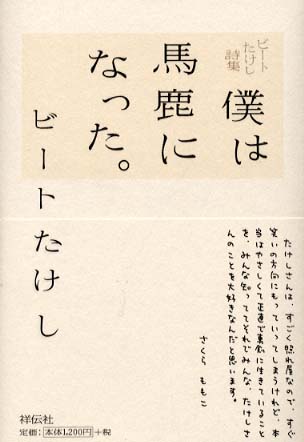 ビートたけし詩集
僕は
馬鹿に
なった。
ビートたけし
たけしさんは、すごく照れ屋なので、すぐ
笑いの方向にもっていってしまうけれど、本
当はやさしくて正直で真剣に生きていること
を、みんな知っててそれでみんな、たけしさ
んのことを大好きなんだと思います。
さくら ももこ
祥伝社
定価:本体1,200円+税